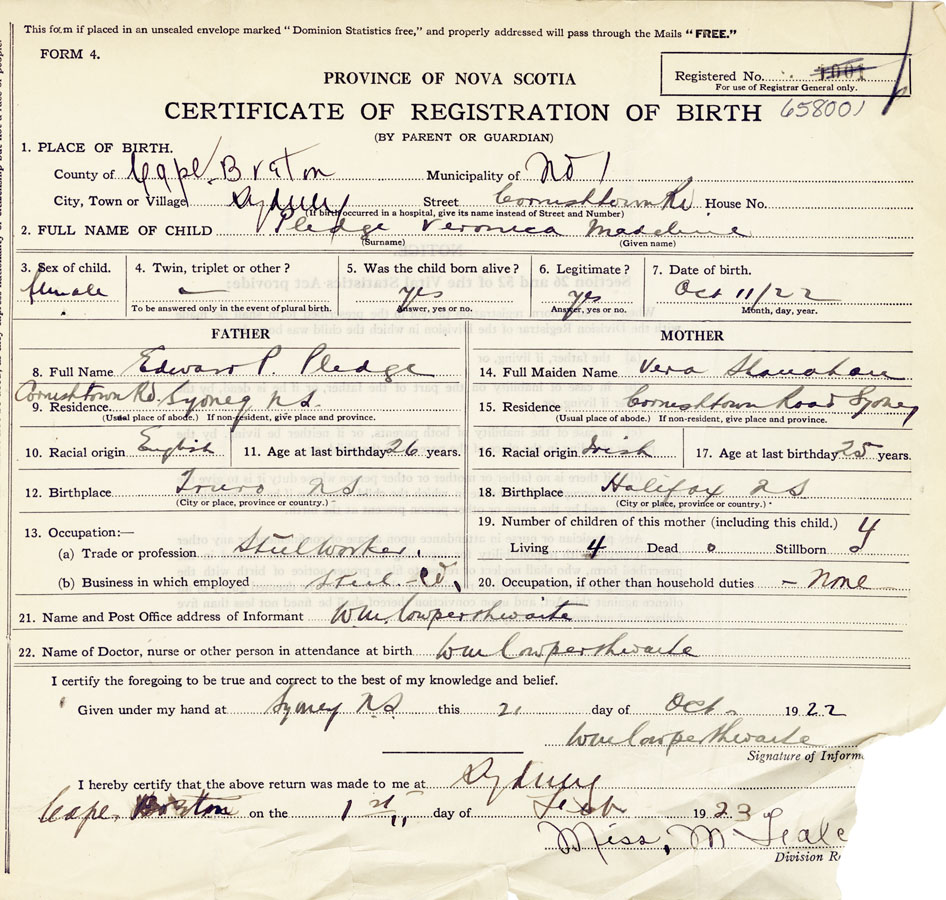 This form if placed in an unsealed envelope marked "Dominion Statistics free," and properly addressed will pass through the Mails "FREE."
FORM 4.
PROVINCE OF NOVA SCOTIA
Registered No. 1001
For use of Registrar General only.
CERTIFICATE OF REGISTRATION OF BIRTH 658001
(BY PARENT OR GUARDIAN)
1. PLACE OF BIRTH.
County of Cape Breton Municipality of No 1
City, Town or Village Sydney Street Cornishtown Rd House No.
(If birth occurred in a hospital, give its name instead of Street and Number)
2. FULL NAME OF CHILD Pledge Veronica Madeline
(Surname) (Given name)
3. Sex of child. 4. Twin, triplet or other? 5. Was the child born alive? 6. Legitimate? 7. Date of birth.
female — yes yes Oct 11/22
To be answered only in the event of plural birth. Answer, yes or no. Answer, yes or no. Month, day, year.
FATHER
8. Full Name Edward P. Pledge
Cornishtown Rd. Sydney N.S.
9. Residence
(Usual place of abode.) If non-resident, give place and province.
10. Racial origin English 11. Age at last birthday 26 years.
12. Birthplace Truro N S
(City or place, province or country.)
13. Occupation:—
(a) Trade or profession Steelworker.
(b) Business in which employed Steel - Co.
MOTHER
14. Full Maiden Name Vera Shanahan
15. Residence Cornishtown Road Sydney
(Usual place of abode.) If non-resident, give place and province.
16. Racial origin Irish 17. Age at last birthday 25 years.
18. Birthplace Halifax N S
(City or place, province or country.)
19. Number of children of this mother (including this child.) 4
Living 4 Dead 0 Stillborn 0
20. Occupation, if other than household duties - None
21. Name and Post Office address of Informant Wm. Cowperthwaite
22. Name of Doctor, nurse or other person in attendance at birth Wm Cowperthwaite
I certify the foregoing to be true and correct to the best of my knowledge and belief.
Given under my hand at Sydney N.S. this 21 day of Oct. 1922
Wm Cowperthwaite
Signature of Inform
I hereby certify that the above return was made to me at Sydney
Cape Breton on the 1st day of Feb 1923
Miss. M
Division R